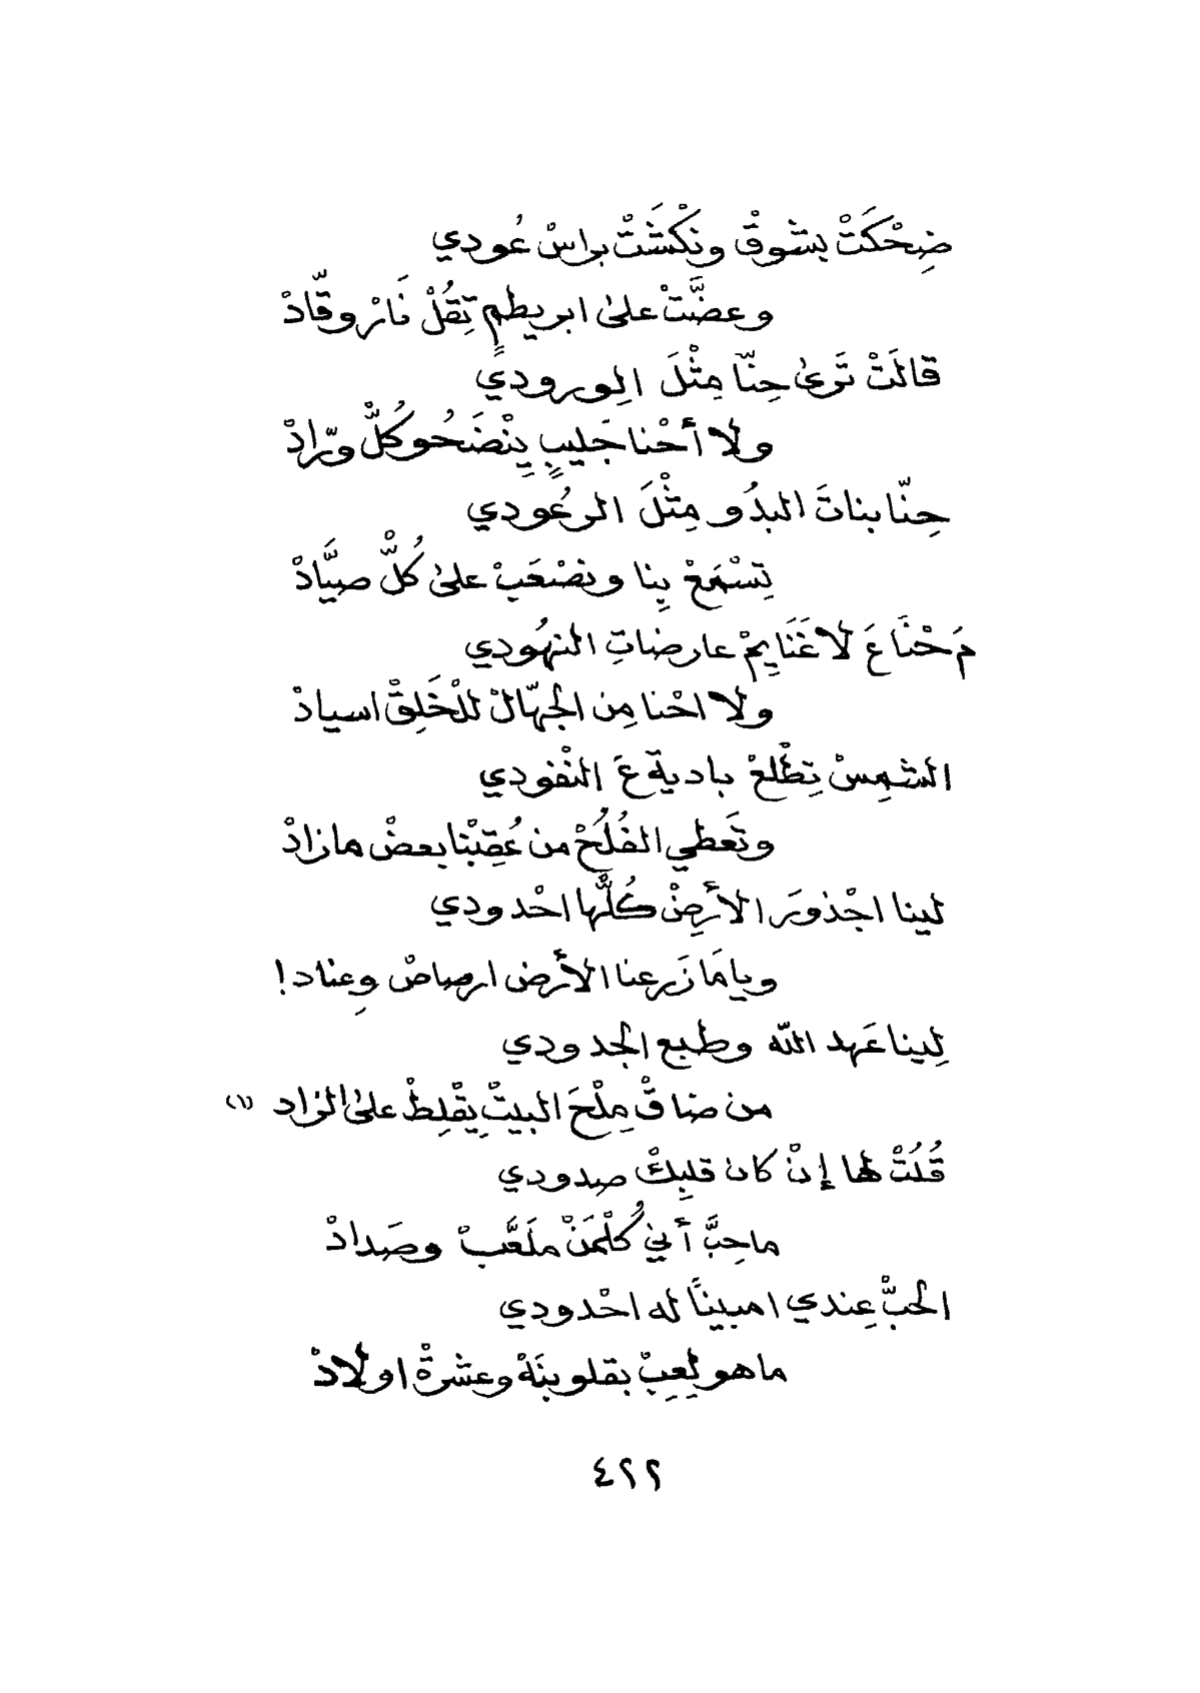 ضِحْكَتْ بشوقْ ونَكْشَتْ براسْ عُودي
وعضَّتْ على ابريطمٍ تِقُلْ نَارْ وقّادْ
قالَتْ تَرىٰ حِنّا مِثْلَ الِورودي
ولا أحْنا جَليبٍ يِنْضَحُو كُلّْ ورّادْ
حِنّا بناتَ البدُو مِثْلَ الرعُودي
تِسْمَعْ بِنا ونصْعَبْ علىٰ كُلّْ صيَّادْ
مَحْنَا عَ لاغَنَايِمْ عارضاتِ النهُودي
ولا احْنا مِن الجهّالْ للْخَلِقْ اسيادْ
الشمِسْ تِطْلعْ باديةٍ عَ النْفودي
وتَعطي الفُلُحْ من عُقِبْنا بعضْ ما زادْ
لينا اجْذورَ الأرضْ كُلّْها احْدودي
وياما زَرعنا الأرض ارصاصْ وِعناد!
لِينا عَهد اللّه وطبع الجدودي
من ضاقْ مِلْحَ البيتْ يِقْلِطْ علىٰ الزاد (١)
قُلُتْ لها إنْ كان قلبِكْ صِدودي
ما حِبَّ أني كُلْمَنْ ملَعَّبْ وصَدادْ
الحبّْ عِندي امبينًا له احْدودي
ما هو لِعِبْ بقلوبنَهْ وعشرةْ اولادْ
٤٢٢